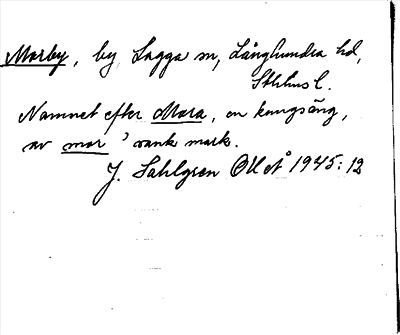 Morby, by, Lagga sn, Långhundra hd,
Sthlms l.
Namnet efter Mora, en kungsäng,
av mor ’sank mark.
J. Sahlgren OUÅ 1945:12